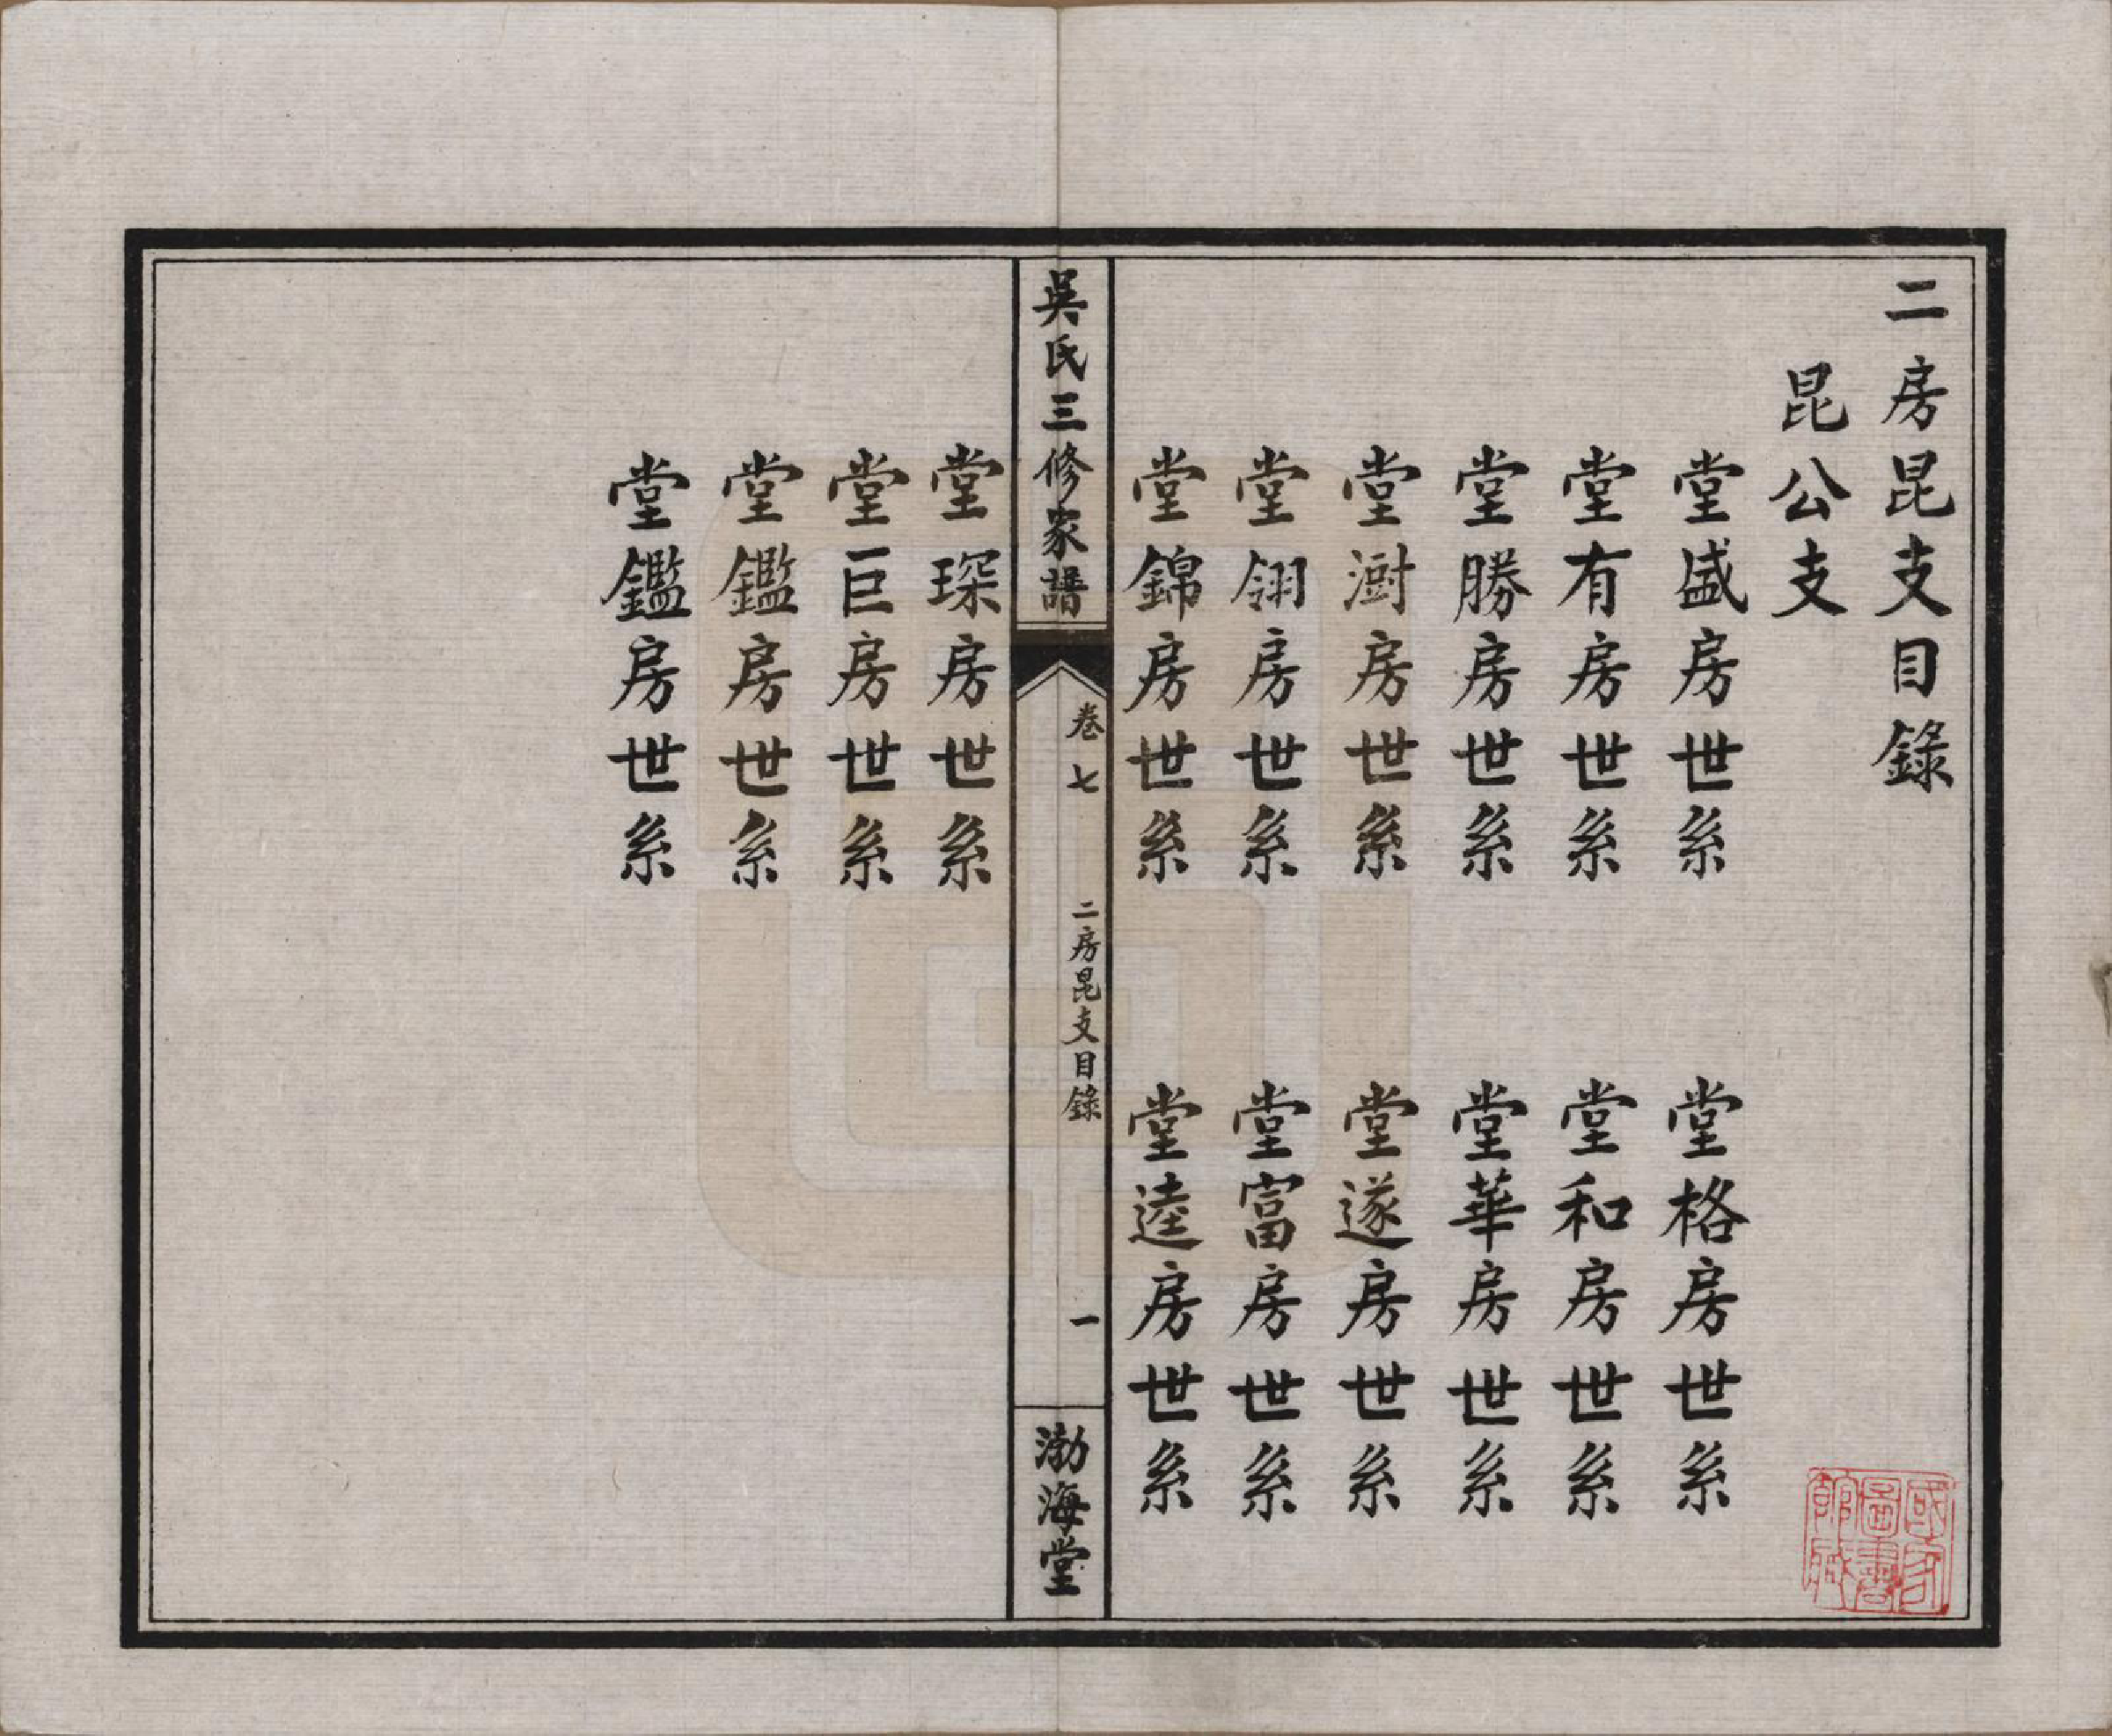 二房昆支目錄
昆公支
堂盛房世系
堂格房世系
堂有房世系
堂和房世系
堂勝房世系
堂華房世系
堂澍房世系
堂遂房世系
堂翎房世系
堂富房世系
堂錦房世系
堂逵房世系
吳氏三修家譜
卷七
二房昆支目錄
一
渤海堂
堂琛房世系
堂巨房世系
堂鑑房世系
堂鑑房世系
國家圖書館藏